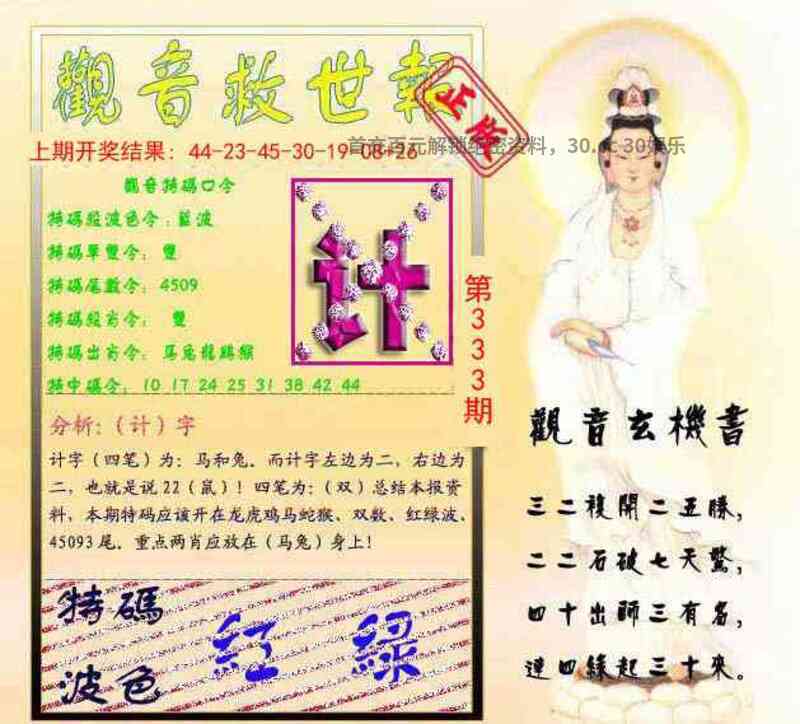 觀音救世報
正版
上期开奖结果：44-23-45-30-19-08+26
首充百元解锁绝密资料，30.cc 30娱乐
觀音特碼口令
特碼段波色令：藍波
特碼單雙令：雙
特碼尾數令：4509
特碼段肖令：雙
特碼出肖令：馬兔龍鷄猴
特中碼令：10 17 24 25 31 38 42 44
计
第333期
分析：（计）字
计字（四笔）为：马和兔．而计字左边为二，右边为
二，也就是说22（鼠）！四笔为：（双）总结本报资
料，本期特码应该开在龙虎鸡马蛇猴、双数、红绿波、
45093尾．重点两肖应放在（马兔）身上！
特碼
波色
紅 綠
觀音玄機書
三二複開二五勝，
二二石破七天驚，
四十出師三有名，
連四緣起三十來。